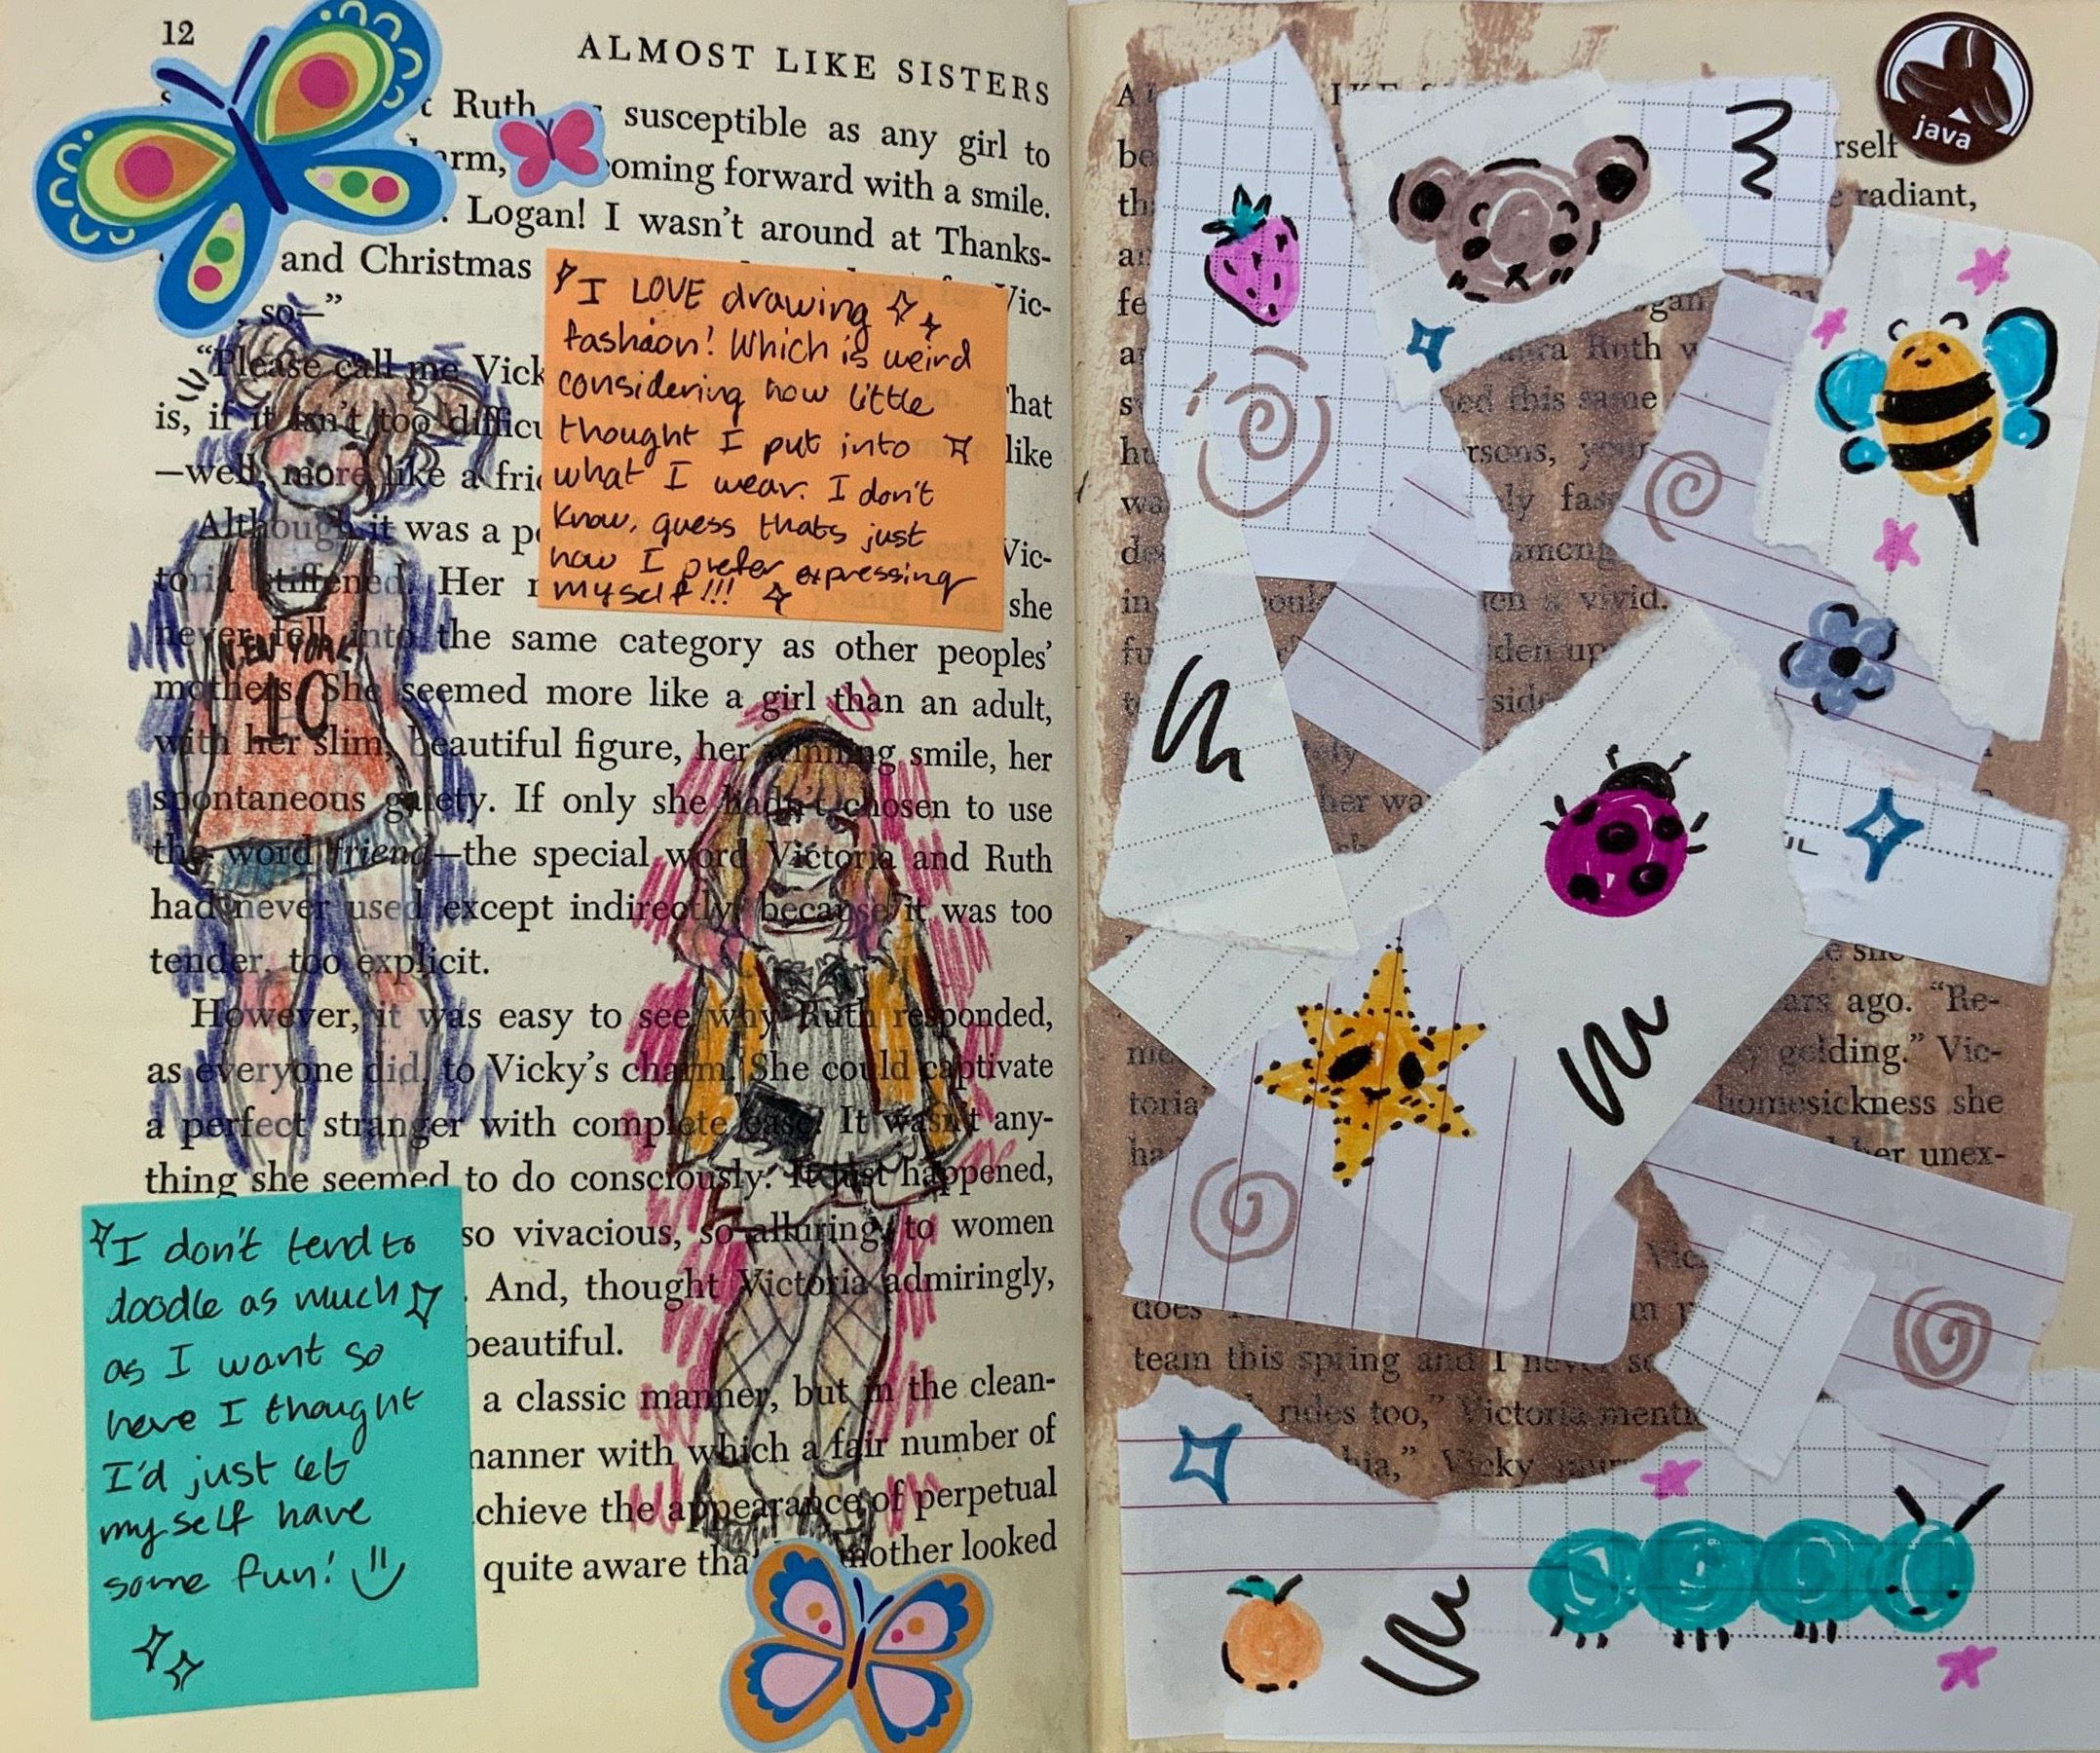 12
ALMOST LIKE SISTERS
t Ruth susceptible as any girl to
arm, coming forward with a smile.
. Logan! I wasn't around at Thanks-
and Christmas
Vic-
so—"
"Please call me Vick
That
is, if it isn't too difficu
like
—well, more like a frie
Although it was a p
Vic-
toria stiffened. Her
she
never fell into the same category as other peoples'
mothers. She seemed more like a girl than an adult,
with her slim, beautiful figure, her winning smile, her
spontaneous gaiety. If only she hadn't chosen to use
the word friend—the special word Victoria and Ruth
had never used except indirectly because it was too
tender, too explicit.
However, it was easy to see why Ruth responded,
as everyone did, to Vicky's charm. She could captivate
a perfect stranger with complete ease. It wasn't any-
thing she seemed to do consciously. It just happened,
so vivacious, so alluring, to women
. And, thought Victoria admiringly,
beautiful.
a classic manner, but in the clean-
manner with which a fair number of
chieve the appearance of perpetual
quite aware tha mother looked
I LOVE drawing
fashion! Which is weird
considering how little
thought I put into
what I wear. I don't
know, guess thats just
how I prefer expressing
myself!!!
NEW YORK
10
I don't tend to
doodle as much
as I want so
here I thought
I'd just let
myself have
some fun!
java
rself
be
radiant,
th
fe
gan
a Ruth w
ed this same
hu
rsons, your
wa
ly fas
de
among
in
coul
en a vivid.
fu
den up
side
her wa
she
ars ago. "Re-
me
golding." Vic-
toria
homesickness she
ha
her unex-
Vic
does
team this spring and I never so
rides too," Victoria menti
hia," Vicky mur